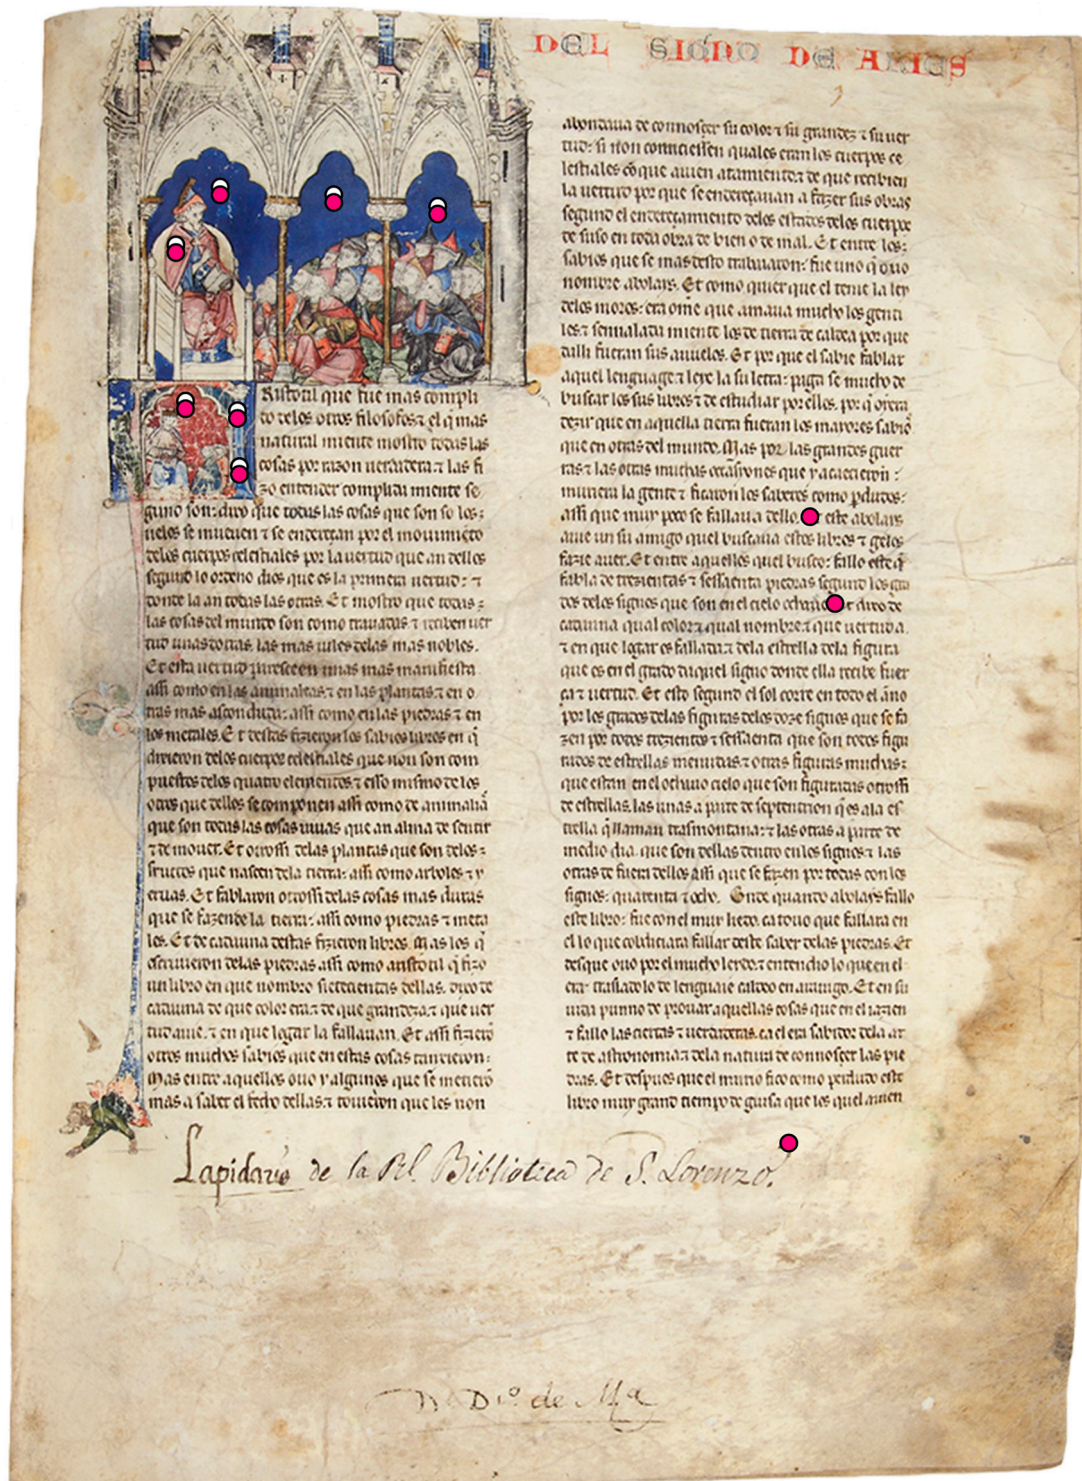 DEL SIGNO DE ARIES
3
Ristotil que fue mas compli
do delos otros filosofos ⁊ el q̃ mas
natural miente mostro todas las
cosas por razon uerdadera ⁊ las fi
zo entender complida miente se
gund son: dixo que todas las cosas que son so los
cielos se mueuen ⁊ se enderezan por el mouimiẽto
delos cuerpos celestiales por la uertud que an dellos
segund lo ordeno dios que es la primera uertud: ⁊
donde la an todas las otras. Et mostro que todas
las cosas del mundo son como trauadas ⁊ reciben uer
tud unas dotras, las mas uiles delas mas nobles.
Et esta uertud paresce en unas mas manifiesta
assi como en las animalias ⁊ en las plantas ⁊ en o
tras mas asconduda: assi como en las piedras ⁊ en
los metales. Et destas fizieron los sabios libros en q̃
dixieron delos cuerpos celestiales que non son com
puestos delos quatro elementos ⁊ esso mismo de los
otros que dellos se componen assi como de animalia
que son todas las cosas uiuas que an alma de sentir
⁊ de mouer. Et otrossi delas plantas que son delos
fructos que nascen dela tierra: assi como arboles ⁊ y
eruas. Et fablaron otrossi delas cosas mas duras
que se fazen de la tierra: assi como piedras ⁊ meta
les. Et de cadauna destas fizieron libros. Mas los q̃
escriuieron delas piedras assi como aristotil q̃ fizo
un libro en que nombro sietecientas dellas. dixo de
cadauna de que color era ⁊ de que grandeza ⁊ que uer
tud auie. ⁊ en que logar la fallauan. Et assi fiziero
otros muchos sabios que en estas cosas tanxieron:
Mas entre aquellos ouo y algunos que se metierõ
mas a saber el fecho dellas ⁊ touieron que les non
abondaua de connoscer su color ⁊ su grandez ⁊ su uer
tud: si non connociessen quales eran los cuerpos ce
lestiales cõ que auien atamiento ⁊ de que recibien
la uertud por que se endereçauan a fazer sus obras
segund el endereçamiento delos estados delos cuerpos
de suso en toda obra de bien o de mal. Et entre los
sabios que se mas desto trabaiaron: fue uno q̃ ouo
nombre abolays. Et como quier que el tenie la ley
delos moros: era ome que amaua mucho los genti
les ⁊ sennalada miente los de tierra de caldea por que
dalli fueran sus auuelos. Et por que el sabie fablar
aquel lenguage ⁊ leye la su letra: paga se mucho de
buscar los sus libros ⁊ de estudiar por elles. por q̃ oyera
dezir que en aquella tierra fueran los mayores sabio
que en otras del mundo. Mas por las grandes guer
ras ⁊ las otras muchas ocasiones que y acaecieron:
muriera la gente ⁊ ficaron los saberes como pdudos:
assi que muy poco se fallaua dello. este abolays
auie un su amigo quel buscaua estos libros ⁊ gelos
fazie auer. Et entre aquellos quel busco: fallo este q̃
fabla de trezientas ⁊ sessaenta piedras segund los gra
dos delos signos que son en el cielo ochauo dixo de
cadauna qual color ⁊ qual nombre ⁊ que uertud a.
⁊ en que logar es fallada ⁊ dela estrella dela figura
que es en el grado daquel signo donde ella recibe fuer
ça ⁊ uertud. Et esto segund el sol corre en todo el anno
por los grados delas figuras delos doze signos que se fa
zen por todos trezientos ⁊ sessaenta que son todos figu
rados de estrellas menudas ⁊ otras figuras muchas:
que estan en el ochauo cielo que son figuradas otrossi
de estrellas. las unas a parte de septentrion q̃ es ala es
trella q̃ llaman trasmontana: ⁊ las otras a parte de
medio dia. que son dellas dentro en los signos ⁊ las
otras de fuera dellos assi que se fazen por todas con los
signos: quarenta ⁊ ocho. Onde quando abolays fallo
este libro: fue con el muy ledo. ca touo que fallara en
el lo que cobdiciara fallar deste saber delas piedras. Et
desque ouo por el mucho leydo ⁊ entendio lo que en el
era: traslado lo de lenguaie caldeo en arauigo. Et en su
uida punno de prouar aquellas cosas que en el iazien
⁊ fallo las ciertas ⁊ uerdaderas. ca el era sabidor dela ar
te de astronomia ⁊ dela natura de connoscer las pie
dras. Et despues que el murio fico como perdudo este
libro muy grand tiempo de guisa que los quel auien
Lapidario de la Rl. Biblioteca de S. Lorenzo.
Dº de Mª